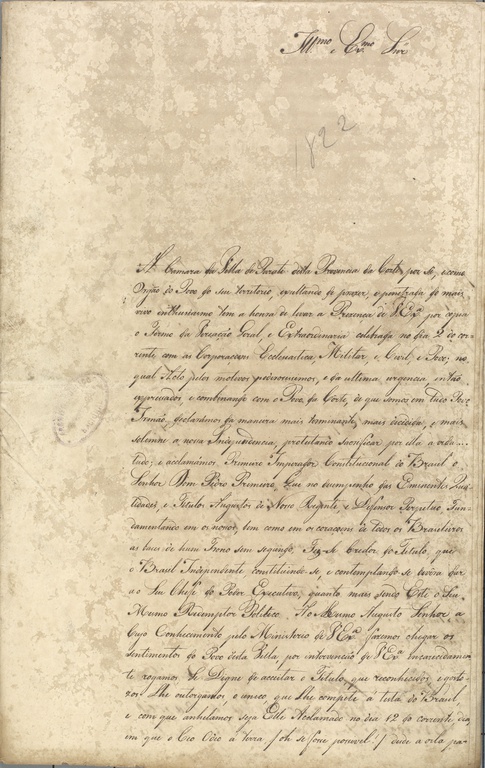 Ill.mo e Ex.mo Snr
1822
A Camara da Villa de Parati desta Provincia da Corte, por Si, e como
Orgão do Povo do seu territorio, exultando de prazer, e penetrada do mais
vivo enthusiasmo tem a honra de levar a Prezença de V Ex.a por copia
o Termo da Vereação Geral, e Extraordinaria celebrada no dia 2 do cor
rente com as Corporacoens Ecclesiastica Militar, e Civil, e Povo; no
qual Acto, pelos motivos poderosissimos, e da ultima urgencia então
expressados e combinando com o Povo da Corte, de que somos em tudo Povo
Irmão, declarámos da maneira mais terminante, mais decidida, e mais
solemne a nossa Independencia, protestando sacrificar por ella a vida ...
tudo; e aclamámos Primeiro Imperador Constitucional do Brasil o
Senhor Dom Pedro Primeiro, Que no dezempenho das Eminentes Qua
lidades, e Titulos Augustos de Nosso Regente, e Defensor Perpetuo, Fun
damentando em os nossos, bem como em os coracoens de todos os Brasileiros
as bases de hum Trono sem segundo, Fez-Se Credor do Titulo, que
o Brasil Independente constituindo-se, e contemplando-se devera dar
ao Seu Chefe do Poder Executivo, quanto mais sendo Este o Seu
Mesmo Redemptor Politico. Ao Mesmo Augusto Senhor a
Cujo Conhecimento pelo Ministerio de V Ex.a fazemos chegar os
sentimentos do Povo desta Villa por intervenção de V Ex.a incarecidamen
te rogamos Se Digne de acceitar o Titulo, que reconhecidos, e gosto
zos Lhe outorgamos, o unico, que Lhe compete á testa do Brasil,
e com que anhelamos seja Elle Acclamado no dia 12 do corrente, dia
em que o Ceo Odeo á terra / oh se fosse possivel! / dude a orla pa-